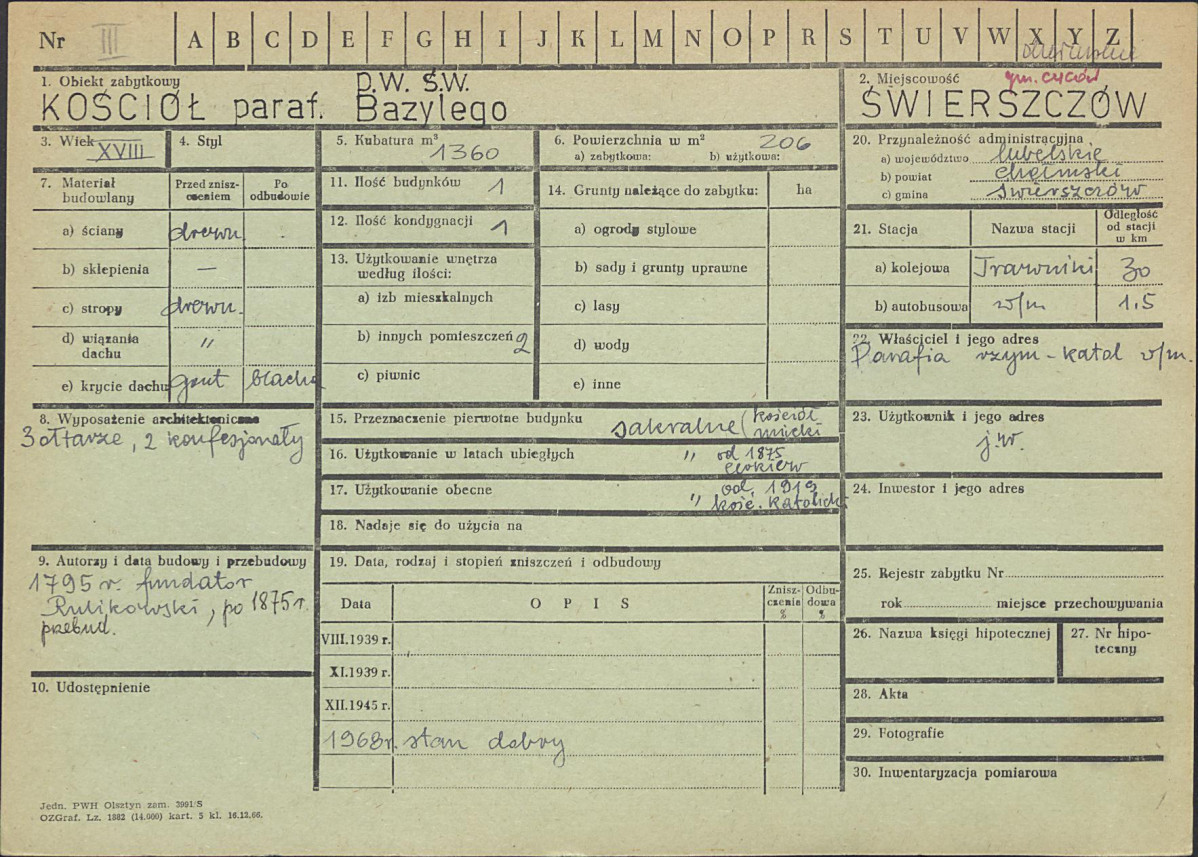 Nr III A B C D E F G H I J K L M N O P R S T U V W X Y Z
1. Obiekt zabytkowy
KOŚCIÓŁ paraf. P.W. ŚW. Bazylego
2. Miejscowość
gm. Cyców
ŚWIERSZCZÓW
3. Wiek XVIII
4. Styl
5. Kubatura m³ 1360
6. Powierzchnia w m² 206
a) zabytkowa: b) użytkowa:
7. Materiał budowlany
Przed zniszczeniem
Po odbudowie
a) ściany drewn.
b) sklepienia —
c) stropy drewn.
d) wiązania dachu "
e) krycie dachu gont blacha
8. Wyposażenie architektoniczne
3 ołtarze, 2 konfesjonały
9. Autorzy i data budowy i przebudowy
1795 r. fundator
Rulikowski, po 1875 r.
przebud.
10. Udostępnienie
11. Ilość budynków 1
12. Ilość kondygnacji 1
13. Użytkowanie wnętrza
według ilości:
a) izb mieszkalnych
b) innych pomieszczeń 2
c) piwnic
14. Grunty należące do zabytku: ha
a) ogrody stylowe
b) sady i grunty uprawne
c) lasy
d) wody
e) inne
15. Przeznaczenie pierwotne budynku sakralne (kościół
unicki
16. Użytkowanie w latach ubiegłych " od 1875
cerkiew
17. Użytkowanie obecne " od 1919
kość. katolicki
18. Nadaje się do użycia na
19. Data, rodzaj i stopień zniszczeń i odbudowy
Data O P I S Zniszczenie % Odbudowa %
VIII.1939 r.
XI.1939 r.
XII.1945 r.
1968 r. stan dobry
20. Przynależność administracyjna
a) województwo lubelskie
b) powiat chełmski
c) gmina Świerszczów
21. Stacja Nazwa stacji Odległość od stacji w km
a) kolejowa Trawniki 30
b) autobusowa w/m 1.5
22. Właściciel i jego adres
Parafia rzym-katol w/m.
23. Użytkownik i jego adres
j.w.
24. Inwestor i jego adres
25. Rejestr zabytku Nr
rok miejsce przechowywania
26. Nazwa księgi hipotecznej
27. Nr hipoteczny
28. Akta
29. Fotografie
30. Inwentaryzacja pomiarowa
Jedn. PWH Olsztyn zam. 3991/S
OZGraf. Lz. 1882 (14.000) kart. 5 kl. 16.12.66.